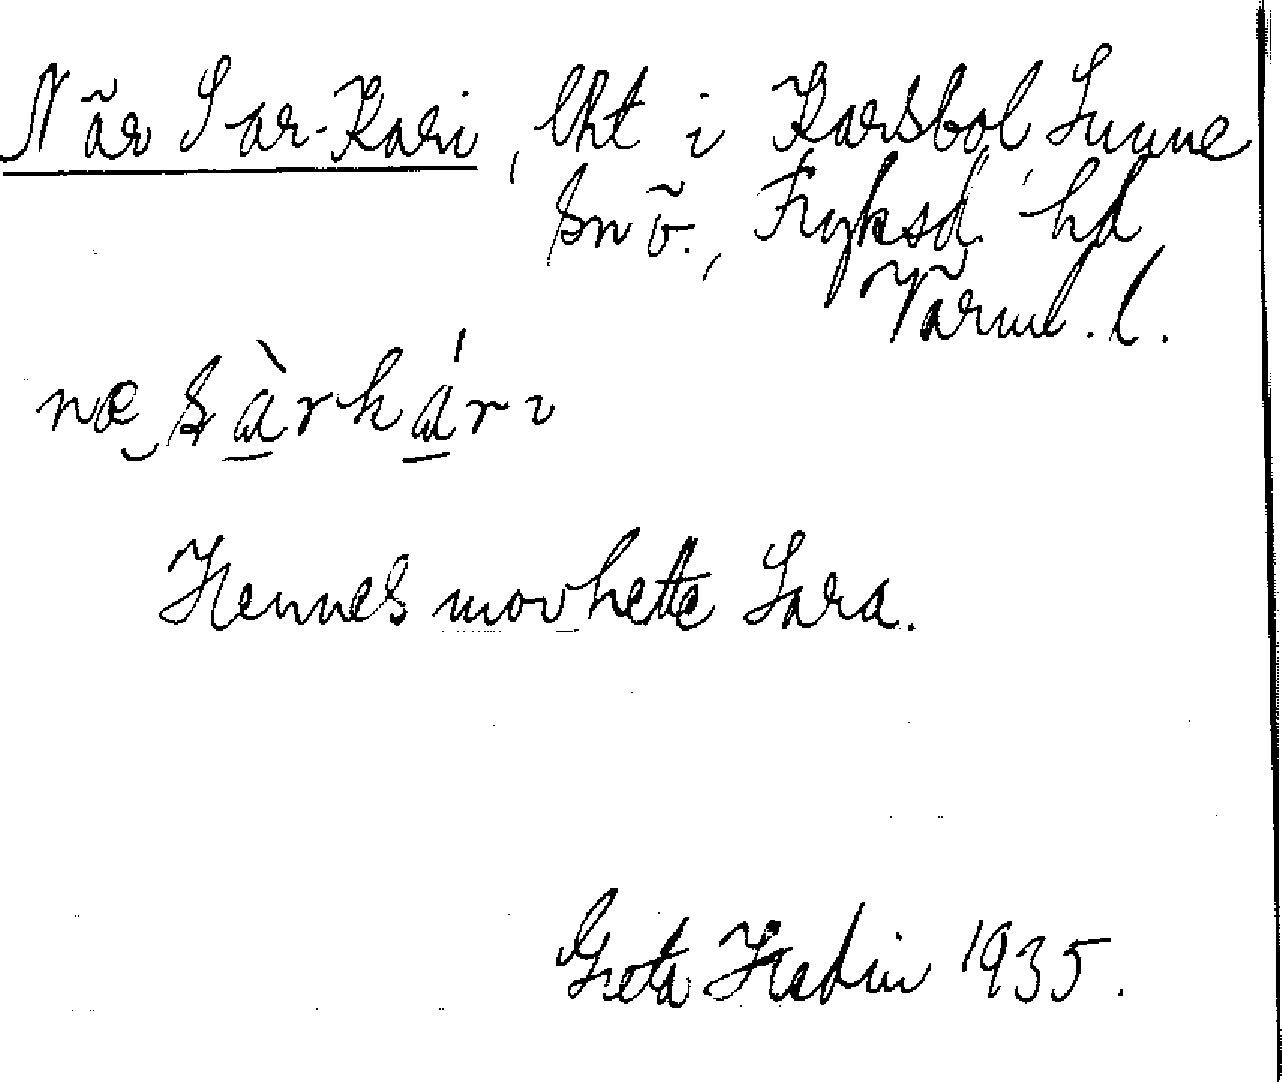 När Sar-Kari, lht i Karsbol, Sunne
sn ö., Fryksd. hd,
Värml. l.
næ sàrkárı
Hennes mor hette Sara.
Greta Hedin 1935.